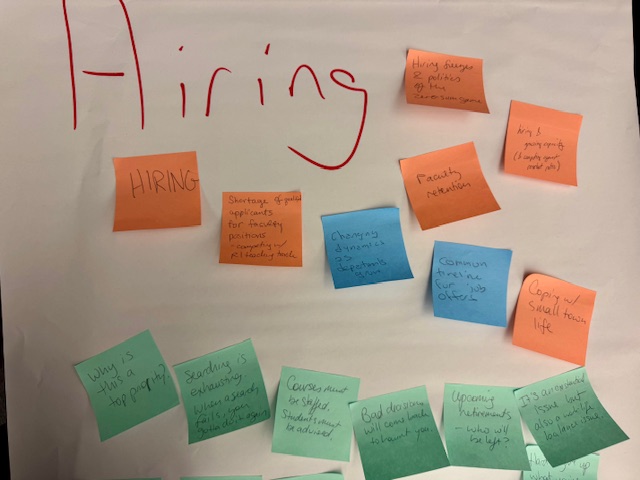 Hiring
Hiring freezes
& politics
of the
zero-sum game
hiring &
growing capacity
market jobs)
HIRING
Shortage of
applicants
for faculty
positions
- competing w/
R1 teaching track
Faculty
retention
Changing
dynamics
as
departments
grow
Common
timeline
for job
offers
Coping w/
small town
life
Why is
this a
top priority?
Searching is
exhausting
When a search
fails, you
gotta do it again
Courses must
be staffed.
Students must
be advised.
Bad decisions
will come back
to haunt you.
Upcoming
retirements
- who will
be left?
It's an
issue but
also a work life
balance issue.
up
what